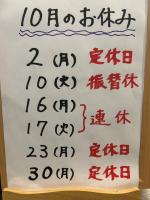 10月のお休み
2(月) 定休日
10(火) 振替休
16(月)
17(火) 連休
23(月) 定休日
30(月) 定休日